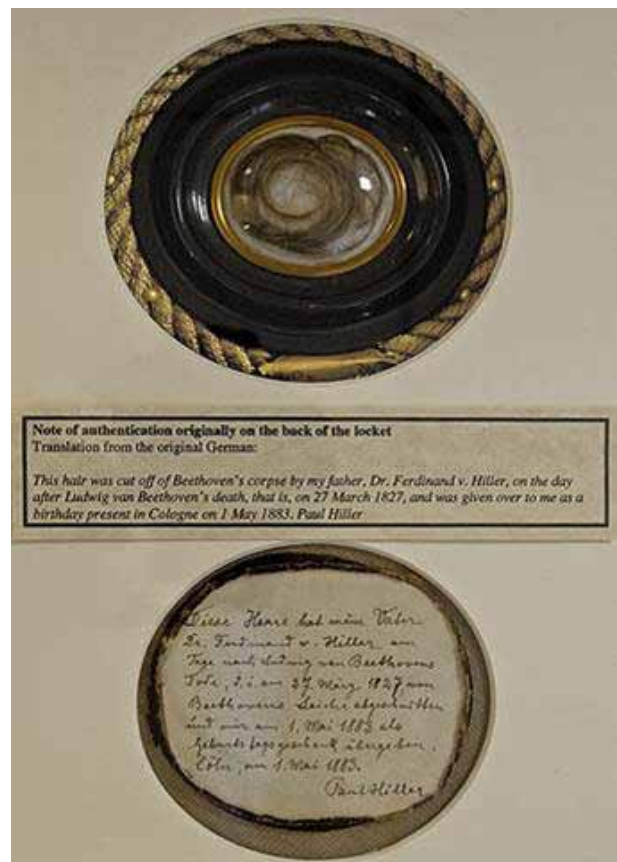 Note of authentication originally on the back of the locket
Translation from the original German:
This hair was cut off of Beethoven's corpse by my father, Dr. Ferdinand v. Hiller, on the day
after Ludwig van Beethoven's death, that is, on 27 March 1827, and was given over to me as a
birthday present in Cologne on 1 May 1883. Paul Hiller
Diese Haare hat mein Vater
Dr. Ferdinand v. Hiller am
Tage nach Ludwig van Beethovens
Tode, d. i. am 27. März 1827 von
Beethovens Leiche abgeschnitten
und mir am 1. Mai 1883 als
Geburtstagsgeschenk übergeben.
Cöln, am 1. Mai 1883.
Paul Hiller